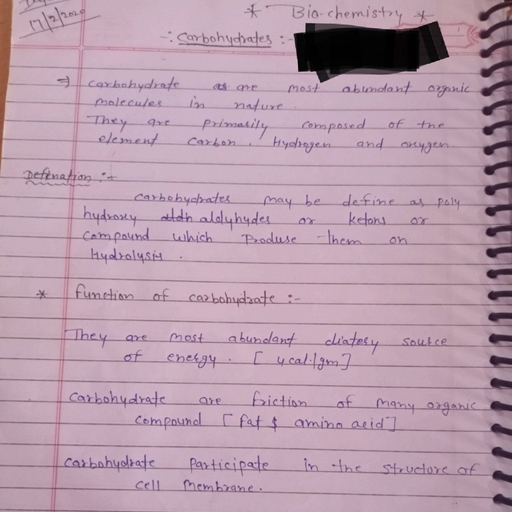 17/2/2020
* Bio-chemistry *
-: Carbohydrates :-
⇒ carbohydrate as are most abundant organic
molecules in nature
They are primarily composed of the
element carbon, Hydrogen and oxygen
Defenation :-
carbohydrates may be define as poly
hydroxy aldyhydes or ketons or
compound which produse them on
Hydrolysis .
* function of carbohydrate :-
They are most abundant diatesy source
of energy. [ 4 cal/gm]
carbohydrate are friction of many organic
compound [ fat & amino acid]
carbohydrate participate in the structure of
cell membrane.